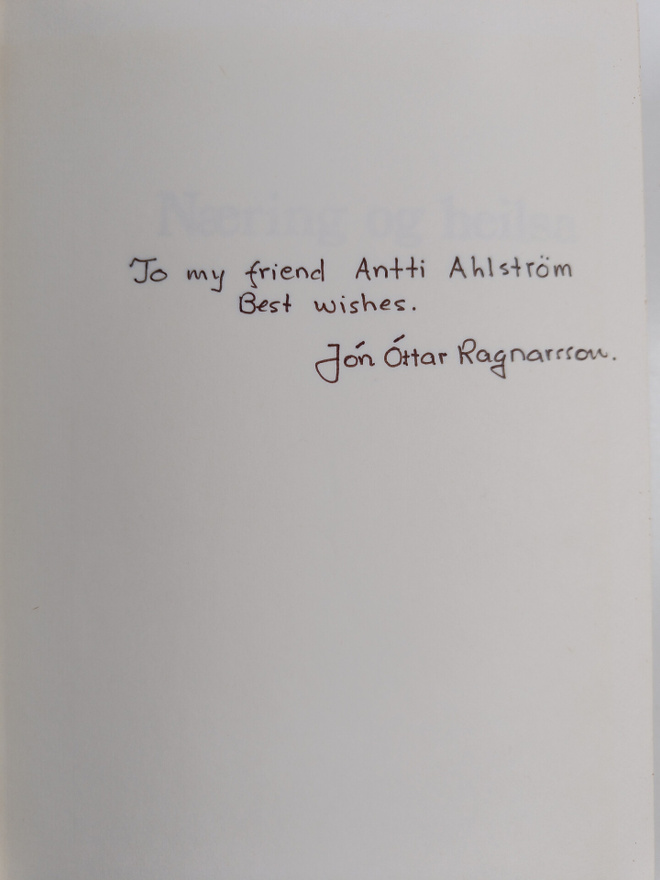 Næring og heilsa
To my friend Antti Ahlström
Best wishes.
Jón Óttar Ragnarsson.